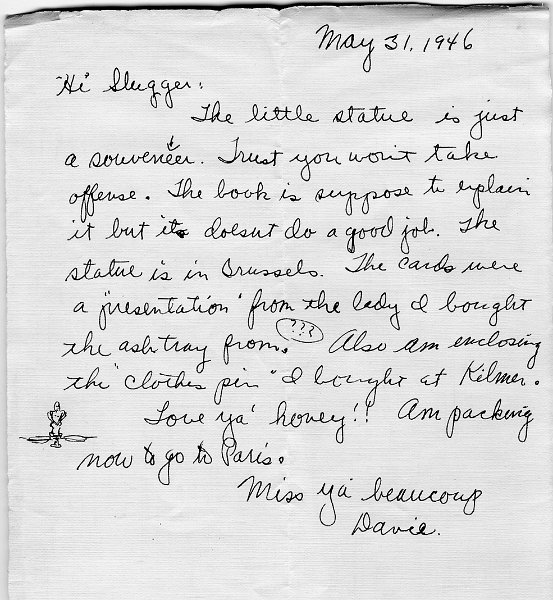 May 31, 1946
"Hi" Slugger:
The little statue is just
a souveneer. Trust you won't take
offense. The book is suppose to explain
it but it doesn't do a good job. The
statue is in Brussels. The cards were
a "presentation" from the lady I bought
the ash tray from. (???) Also am enclosing
the "clothes pin" I bought at Kilmer.
Love ya' honey!! Am packing
now to go to Paris.
Miss ya' beaucoup
Davie.